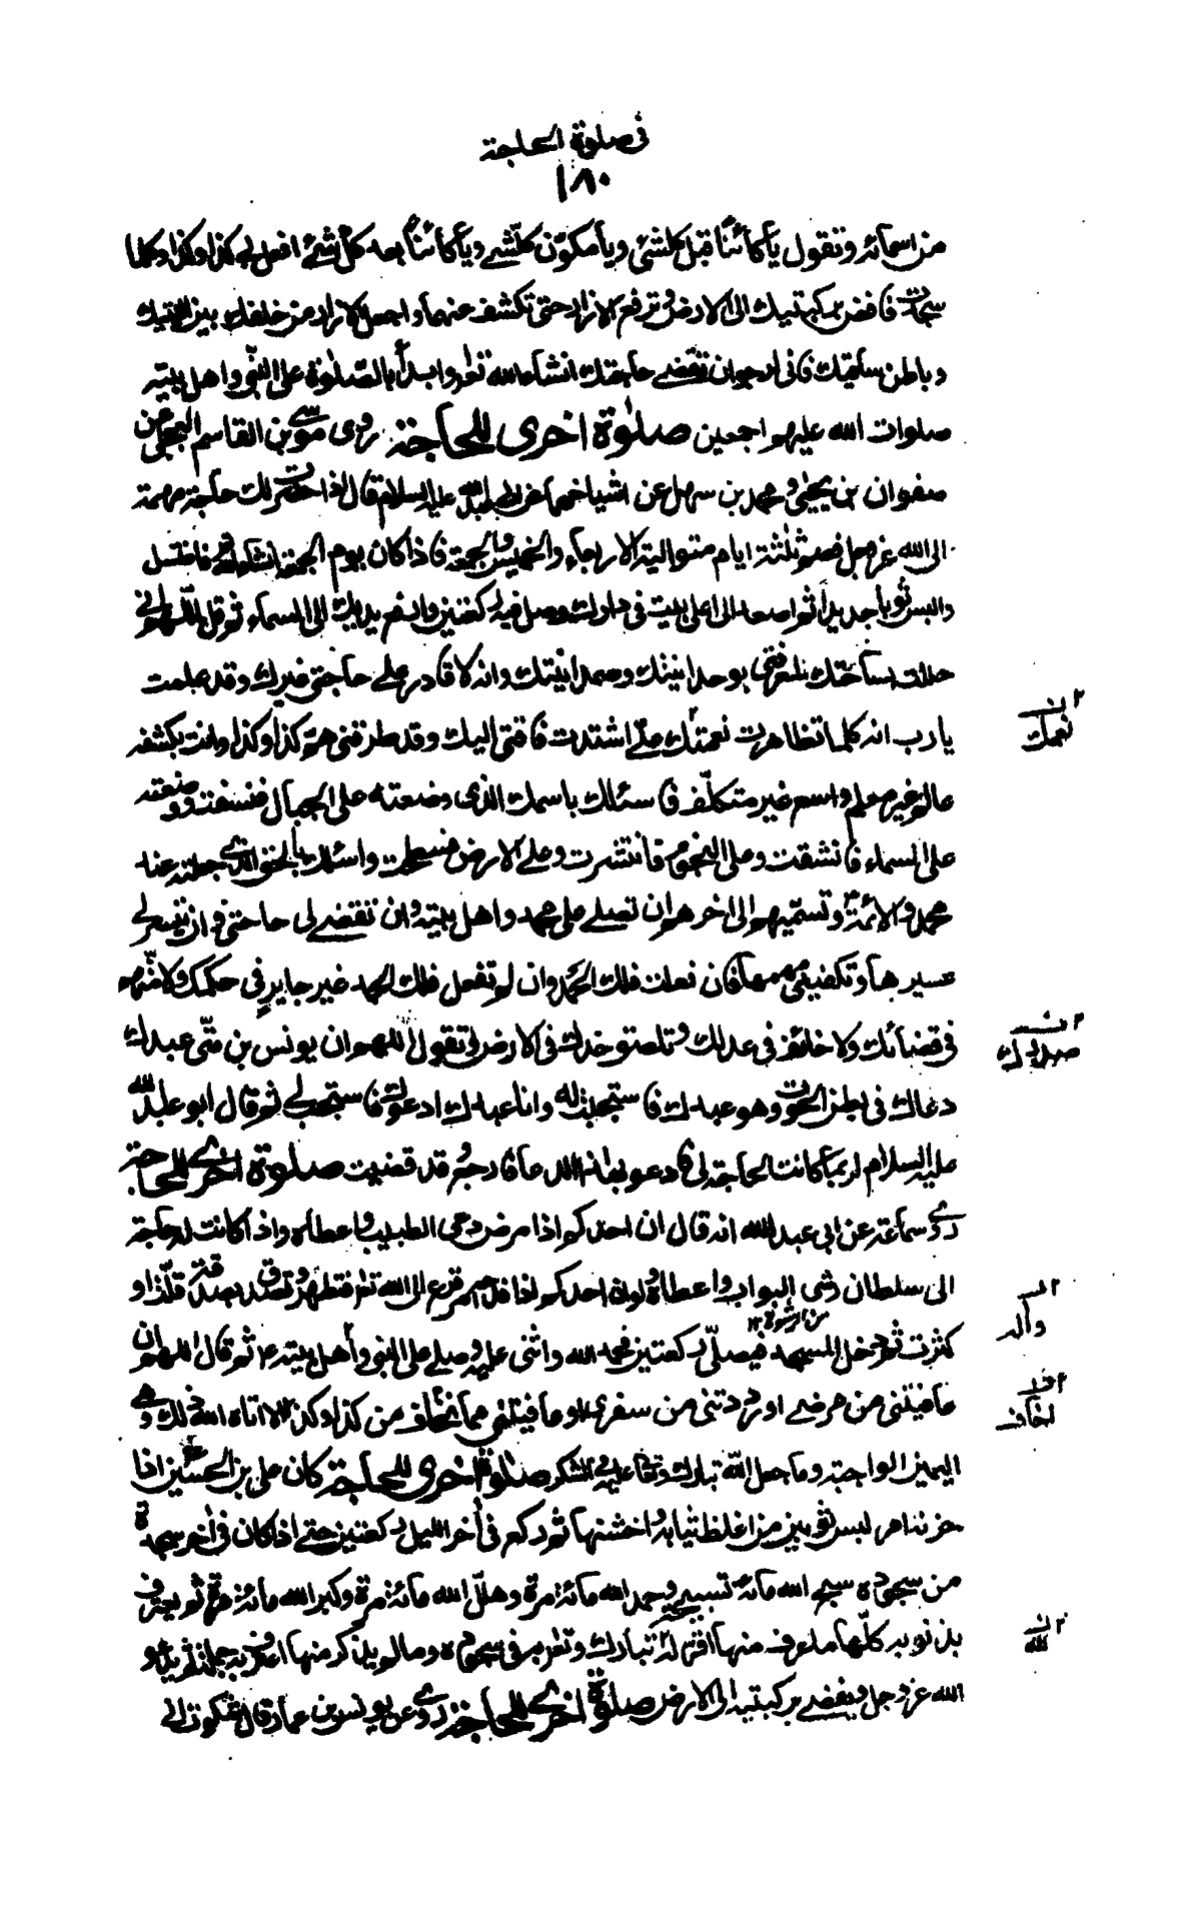 في صلوة الحاجة
١٨٠
من اسمائه وتقول يا كائناً قبل كلشئ ويا مكوّن كلّشئ ويا كائناً بعد كل شئ افعل بي كذا وكذا وكلما
سجدت فافض بركبتيك الى الارض وترفع الازار حتى تكشف عنهما واجعل الازار من خلفك بين اليتيك
وباطن ساقيك فاني ارجو ان تقضى حاجتك انشاء الله تعالى وابدأ بالصّلوة على النبي واهل بيته
صلوات الله عليهم اجمعين صلوة اخرى للحاجة روى موسى بن القاسم البجلي عن
صفوان بن يحيى ومحمد بن سهل عن اشياخهما عن ابي عبد الله عليه السلام قال اذا حضرت لك حاجة مهمة
الى الله عز وجل فصم ثلثة ايام متوالية الاربعاء والخميس والجمعة فاذا كان يوم الجمعة انشاء الله فاغتسل
والبس ثوباً جديداً ثم اصعد الى اعلى بيت في دارك وصل فيه ركعتين وارفع يديك الى السماء ثم قل اللهم اني
حللت بساحتك لمعرفتي بوحدانيتك وصمدانيتك وانه لا قادر على حاجتي غيرك وقد علمت
يا رب انه كلما تظاهرت نعمتك علي اشتدت فاقتي اليك وقد طرقني هم كذا وكذا وانت بكشفه
عالم غير معلم واسع غير متكلّف فاسئلك باسمك الذى وضعته على الجبال فنسفت ووضعته
على السماء فانشقت وعلى النجوم فانتثرت وعلى الارض فسطحت واسئلك بالحق الذي جعلته عند
محمد والائمة وتسميهم الى اخرهم ان تصلى على محمد واهل بيته وان تقضى لى حاجتي وان تيسر لي
عسيرها وتكفيني مهمها فان فعلت فلك الحمد وان لم تفعل فلك الحمد غير جاير في حكمك ولا متهم
في قضائك ولا حائف في عدلك وتلصق خدك في الارض وتقول اللهم ان يونس بن متّى عبدك
دعاك في بطن الحوت وهو عبدك فاستجبت له وانا عبدك ادعوك فاستجب لي ثم قال ابو عبد الله
عليه السلام لربما كانت الحاجة لي فادعو بهذا الدعاء فارجع وقد قضيت صلوة اخرى للحاجة
روى سماعة عن ابي عبد الله انه قال ان احدكم اذا مرض دعى الطبيب واعطاه واذا كانت له حاجة
الى سلطان رشى البواب واعطاه ولو ان احدكم اذا فدحه امر فزع الى الله تعالى فتطهر وتصدق بصدقة قلّت او
من الرشوة ١٢
كثرت ثم دخل المسجد فيصلّى ركعتين فحمد الله واثنى عليه وصلى على النبي وأهل بيته ثم قال اللهم ان
عافيتني من مرضي او رددتني من سفري او عافيتني مما اخاف من كذا وكذا الا اتاه الله ذلك وهي
اليمين الواجبة وما جعل الله تبارك وتعالى عليه في الشكر صلوة اخرى للحاجة كان علي بن الحسين اذا
حزنه امر لبس ثوبين من اغلظ ثيابه واخشنها ثم ركع في آخر الليل ركعتين حتى اذا كان في آخر سجدة
من سجوده سبح الله مائة تسبيحة وحمد الله مائة مرة وهلّل الله مائة مرة وكبر الله مائة مرة ثم يعترف
بذنوبه كلّها ما عرف منها اقر له تبارك وتعالى به في سجوده وما لم يذكر منها اعترف به جملة ثم يدعو
الله عز وجل ويفضى بركبتيه الى الارض صلوة اخرى للحاجة روى عن يونس بن عمار قال شكوت الى
نعمك
وآله
اخاف
لله